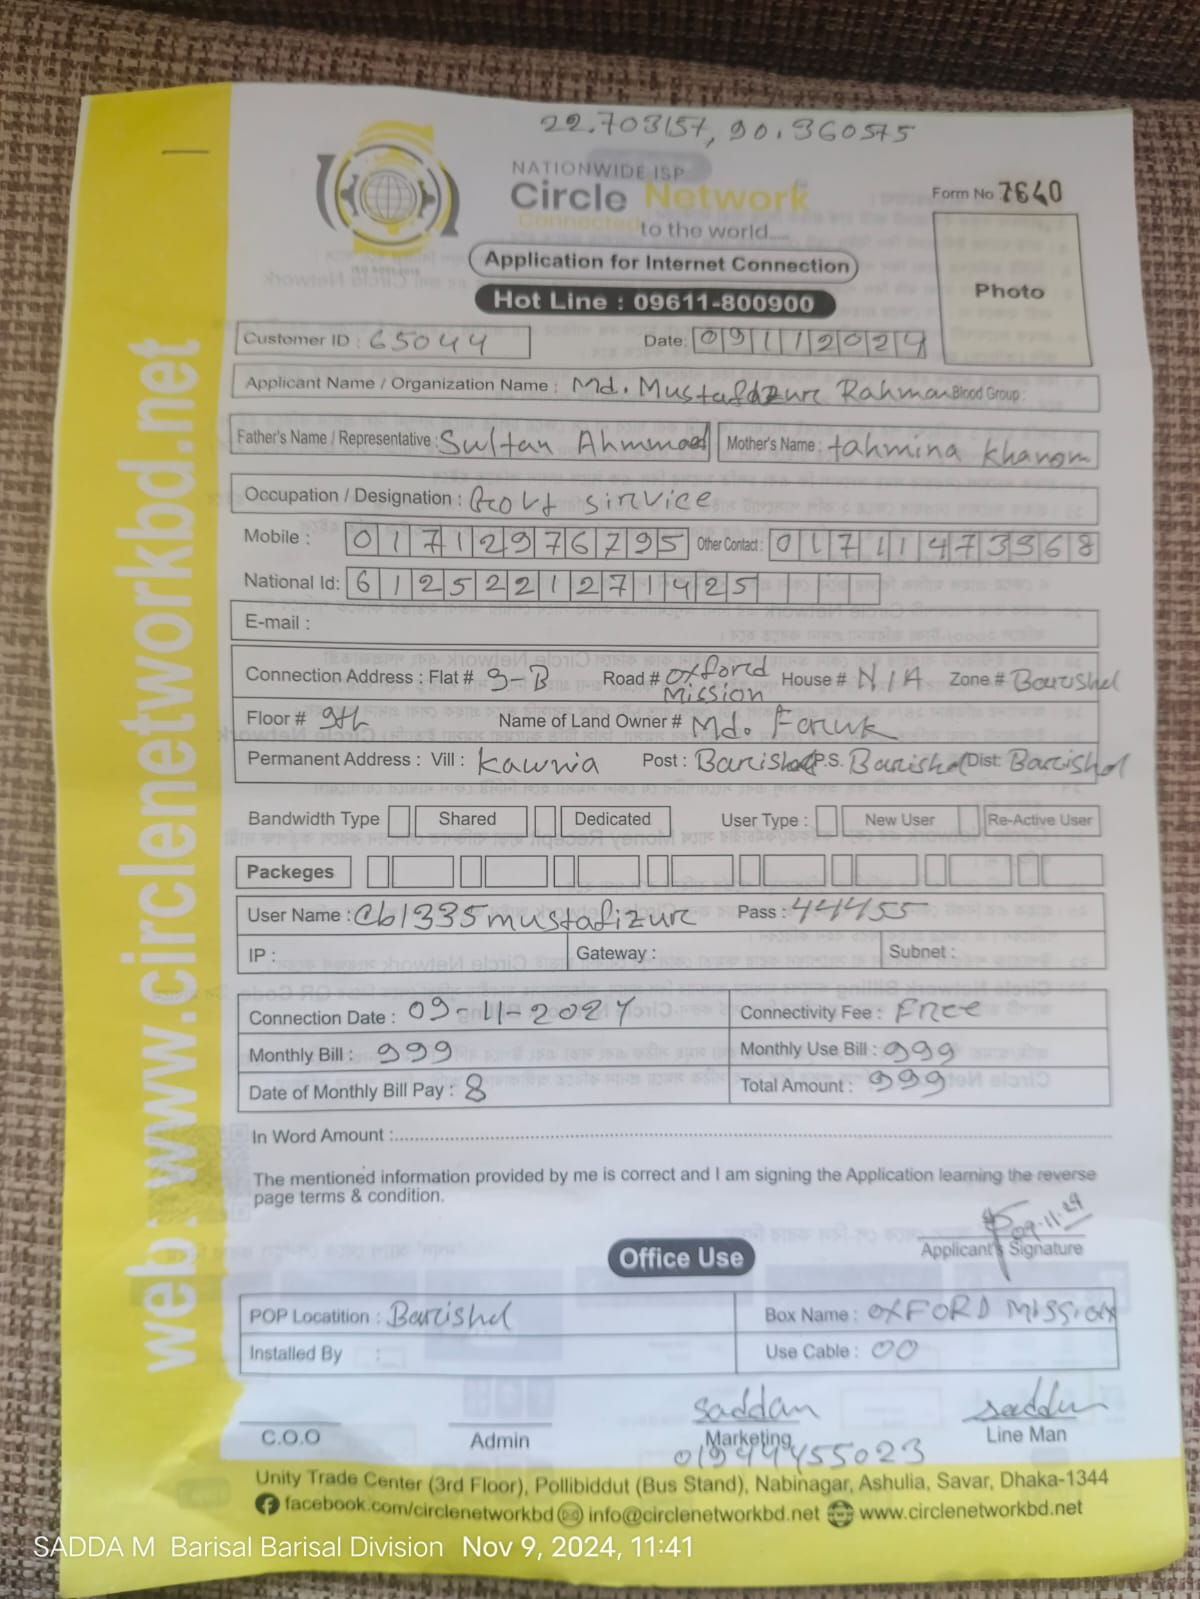 22.703157, 90.360575
NATIONWIDE ISP
Circle Network
Connected to the world....
Form No 7640
Application for Internet Connection
Photo
Hot Line : 09611-800900
Customer ID : 65044 Date: 09112024
Applicant Name / Organization Name : Md. Mustafizur Rahman Blood Group :
Father's Name / Representative : Sultan Ahmmad Mother's Name : tahmina khanom
Occupation / Designation : Govt sirvice
Mobile : 01712976795 Other Contact : 01711473968
National Id: 6125221271425
E-mail :
Connection Address : Flat # 9-B Road # Oxford Mission House # N/A Zone # Barishal
Floor # 9th Name of Land Owner # Md. Faruk
Permanent Address : Vill : Kawnia Post : Barishal P.S. Barishal Dist: Barishal
Bandwidth Type Shared Dedicated User Type : New User Re-Active User
Packeges
User Name : cb1335mustafizur Pass : 44455
IP : Gateway : Subnet :
Connection Date : 09-11-2024 Connectivity Fee : Free
Monthly Bill : 999 Monthly Use Bill : 999
Date of Monthly Bill Pay : 8 Total Amount : 999
In Word Amount :
The mentioned information provided by me is correct and I am signing the Application learning the reverse
page terms & condition.
09-11-24
Applicant's Signature
Office Use
POP Locatition : Barishal Box Name : OXFORD MISSION
Installed By : Use Cable : 00
saddam saddam
C.O.O Admin Marketing Line Man
01944455023
Unity Trade Center (3rd Floor), Pollibiddut (Bus Stand), Nabinagar, Ashulia, Savar, Dhaka-1344
facebook.com/circlenetworkbd info@circlenetworkbd.net www.circlenetworkbd.net
web: www.circlenetworkbd.net
SADDA M Barisal Barisal Division Nov 9, 2024, 11:41